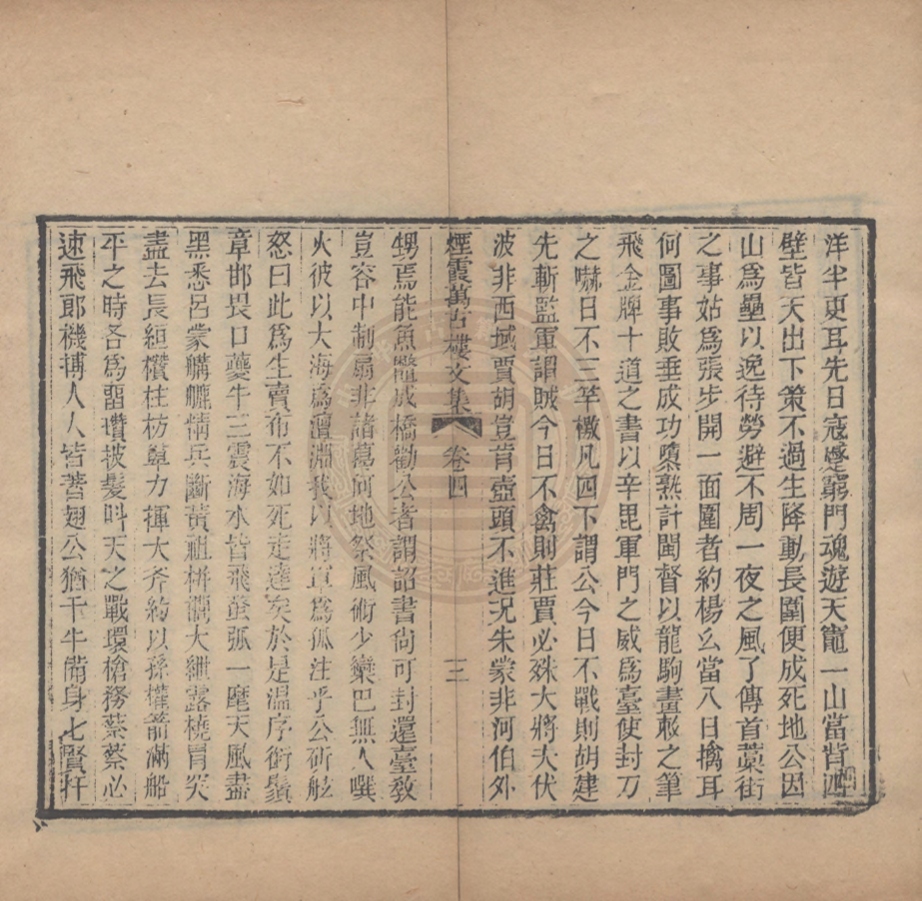 洋半更耳先日寇蹙窮門魂遊天竈一山當背四
壁皆天出下策不過生降動長圍便成死地公因
山爲壘以逸待勞避不周一夜之風了傳首藁街
之事姑爲張步開一面圍者約楊么當八日擒耳
何圖事敗垂成功隳熟計閩督以龍駒畫敕之筆
飛金牌十道之書以辛毘軍門之威爲臺使封刀
之嚇日不三竿檄凡四下謂公今日不戰則胡建
先斬監軍謂賊今日不禽則莊賈必殊大將夫伏
波非西域賈胡豈肯壺頭不進況朱蒙非河伯外
煙霞萬古樓文集 卷四 三
甥焉能魚鼈成橋勸公者謂詔書尙可封還臺敎
豈容中制扇非諸葛何地祭風術少欒巴無人噀
火彼以大海爲澶淵我以將軍爲孤注乎公斫舷
怒曰此爲生賣布不如死走達矣於是温序銜鬚
章邯畏口夔牛三震海水皆飛蚩弧一麾天風盡
黑悉呂蒙䑽艫精兵斷黃祖栟櫚大紲露橈冒突
盡去長絙欑柱枋𥱼力揮大斧約以孫權箭滿船
平之時各爲劉瓚披髮叫天之戰環槍務蔡蔡必
速飛郎機搏人人皆著翅公猶千牛備身七賢扞